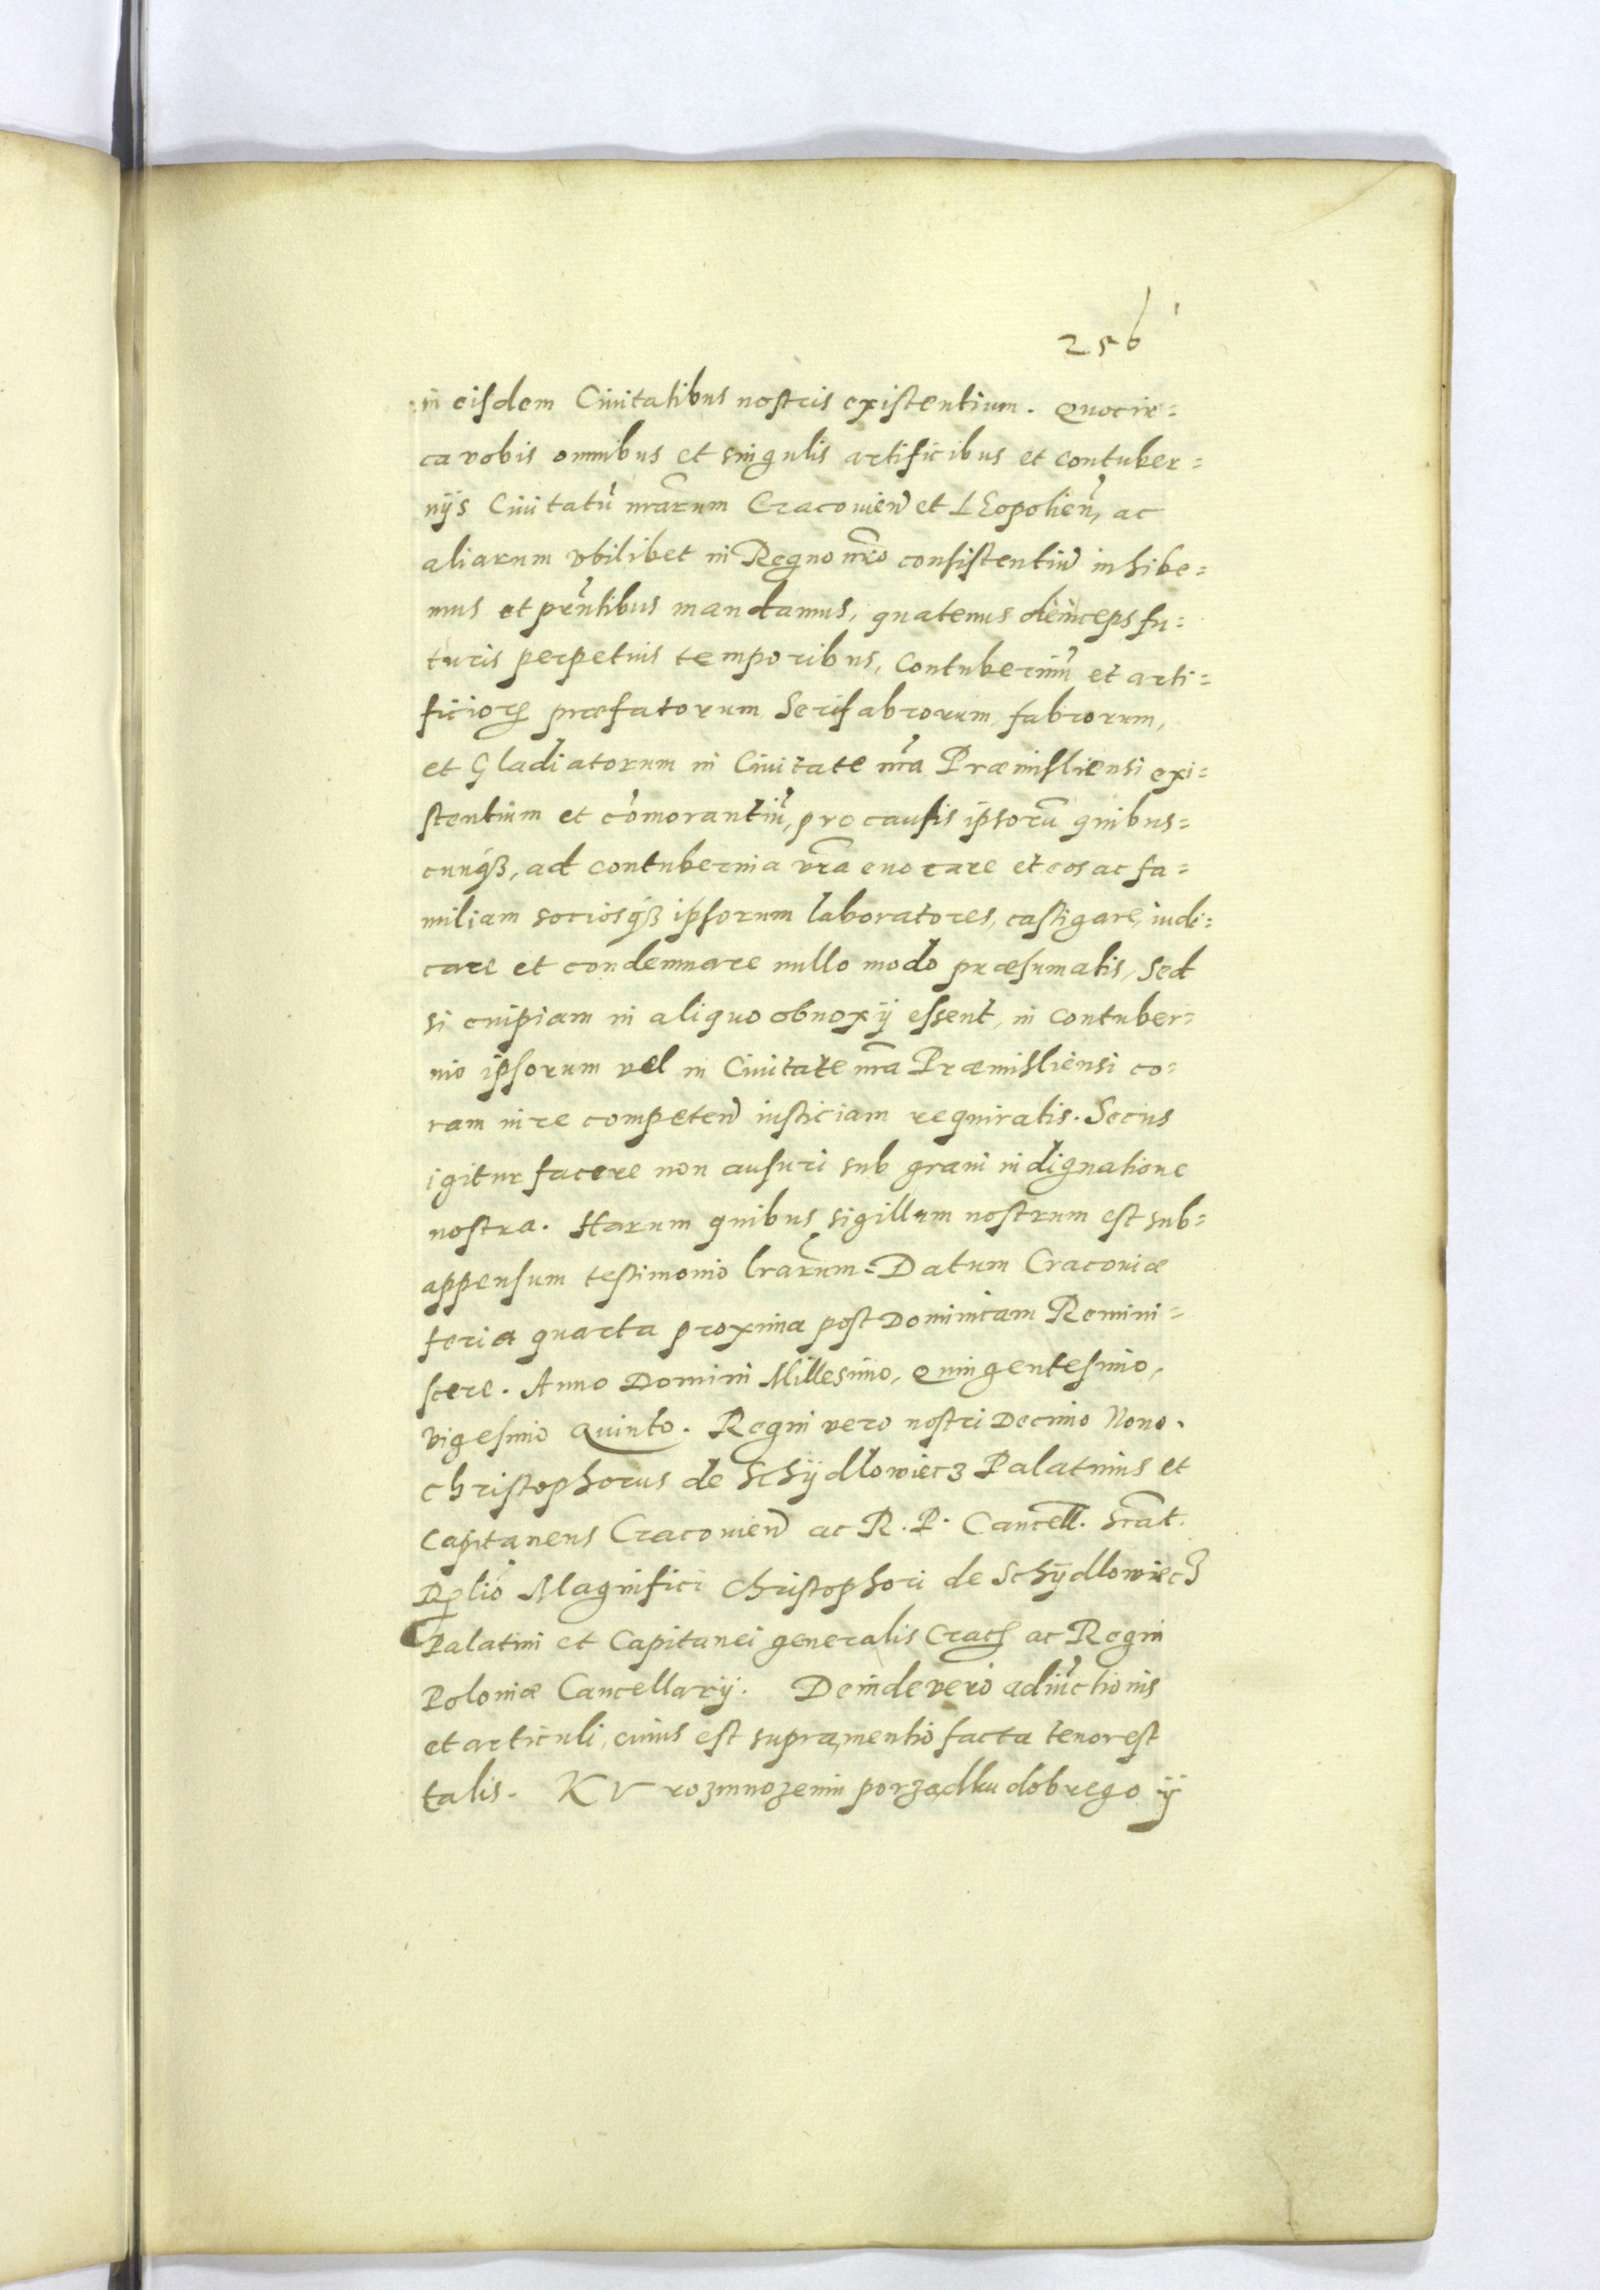 256
in eisdem Ciuitatibus nostris existentium. Quocir=
ca vobis omnibus et singulis artificibus et contuber=
nijs Ciuitatũ nrãrum Cracovieñ et LEopolieñ, ac
aliarum vbilibet in Regno nrõ consistentiũ inhibe=
mus et prñtibus mandamus, quatenus deinceps fu=
turis perpetuis temporibus, Contuberniũ et arti=
ficior̃ præfatorum Serifabrorum, fabrorum,
et Gladiatorum in Ciuitate nrã Præmisliensi exi=
stentium et cõmorantiũ, pro causis ipsorũ quibus=
cunqȝ, ad contubernia vrã euocare et eos ac fa=
miliam sociosqȝ ipsorum laboratores, castigare, iudi=
care et condemnare nullo modo præsumatis, Sed
si cuipiam in aliquo obnoxij essent, in contuber=
nio ipsorum vel in Ciuitate nrã Præmisliensi co=
ram iure competeñ iusticiam requiratis. Secus
igitur facere non ausuri sub graui indignatione
nostra. Harum quibus sigillum nostrum est sub=
appensum testimonio lrãrum. Datum Cracoviæ
feria quarta proxima post Dominicam Remini=
scere. Anno Domini Millesimo, Quingentesimo,
vigesimo Quinto. Regni vero nostri Decimo Nono.
Christophorus de Schÿdlowiecz Palatinus et
Capitaneus Cracovieñ ac R. P. Cancell. Scãt.
Rlio Magnifici Christophori de Schÿdlowiecz
Palatini et Capitanei generalis Crac̃ ac Regni
Poloniæ Cancellarij. Deinde vero adiũctionis
et articuli, cuius est supra mentio facta tenor est
talis. KV rozmnozeniu porządku dobrego ÿ